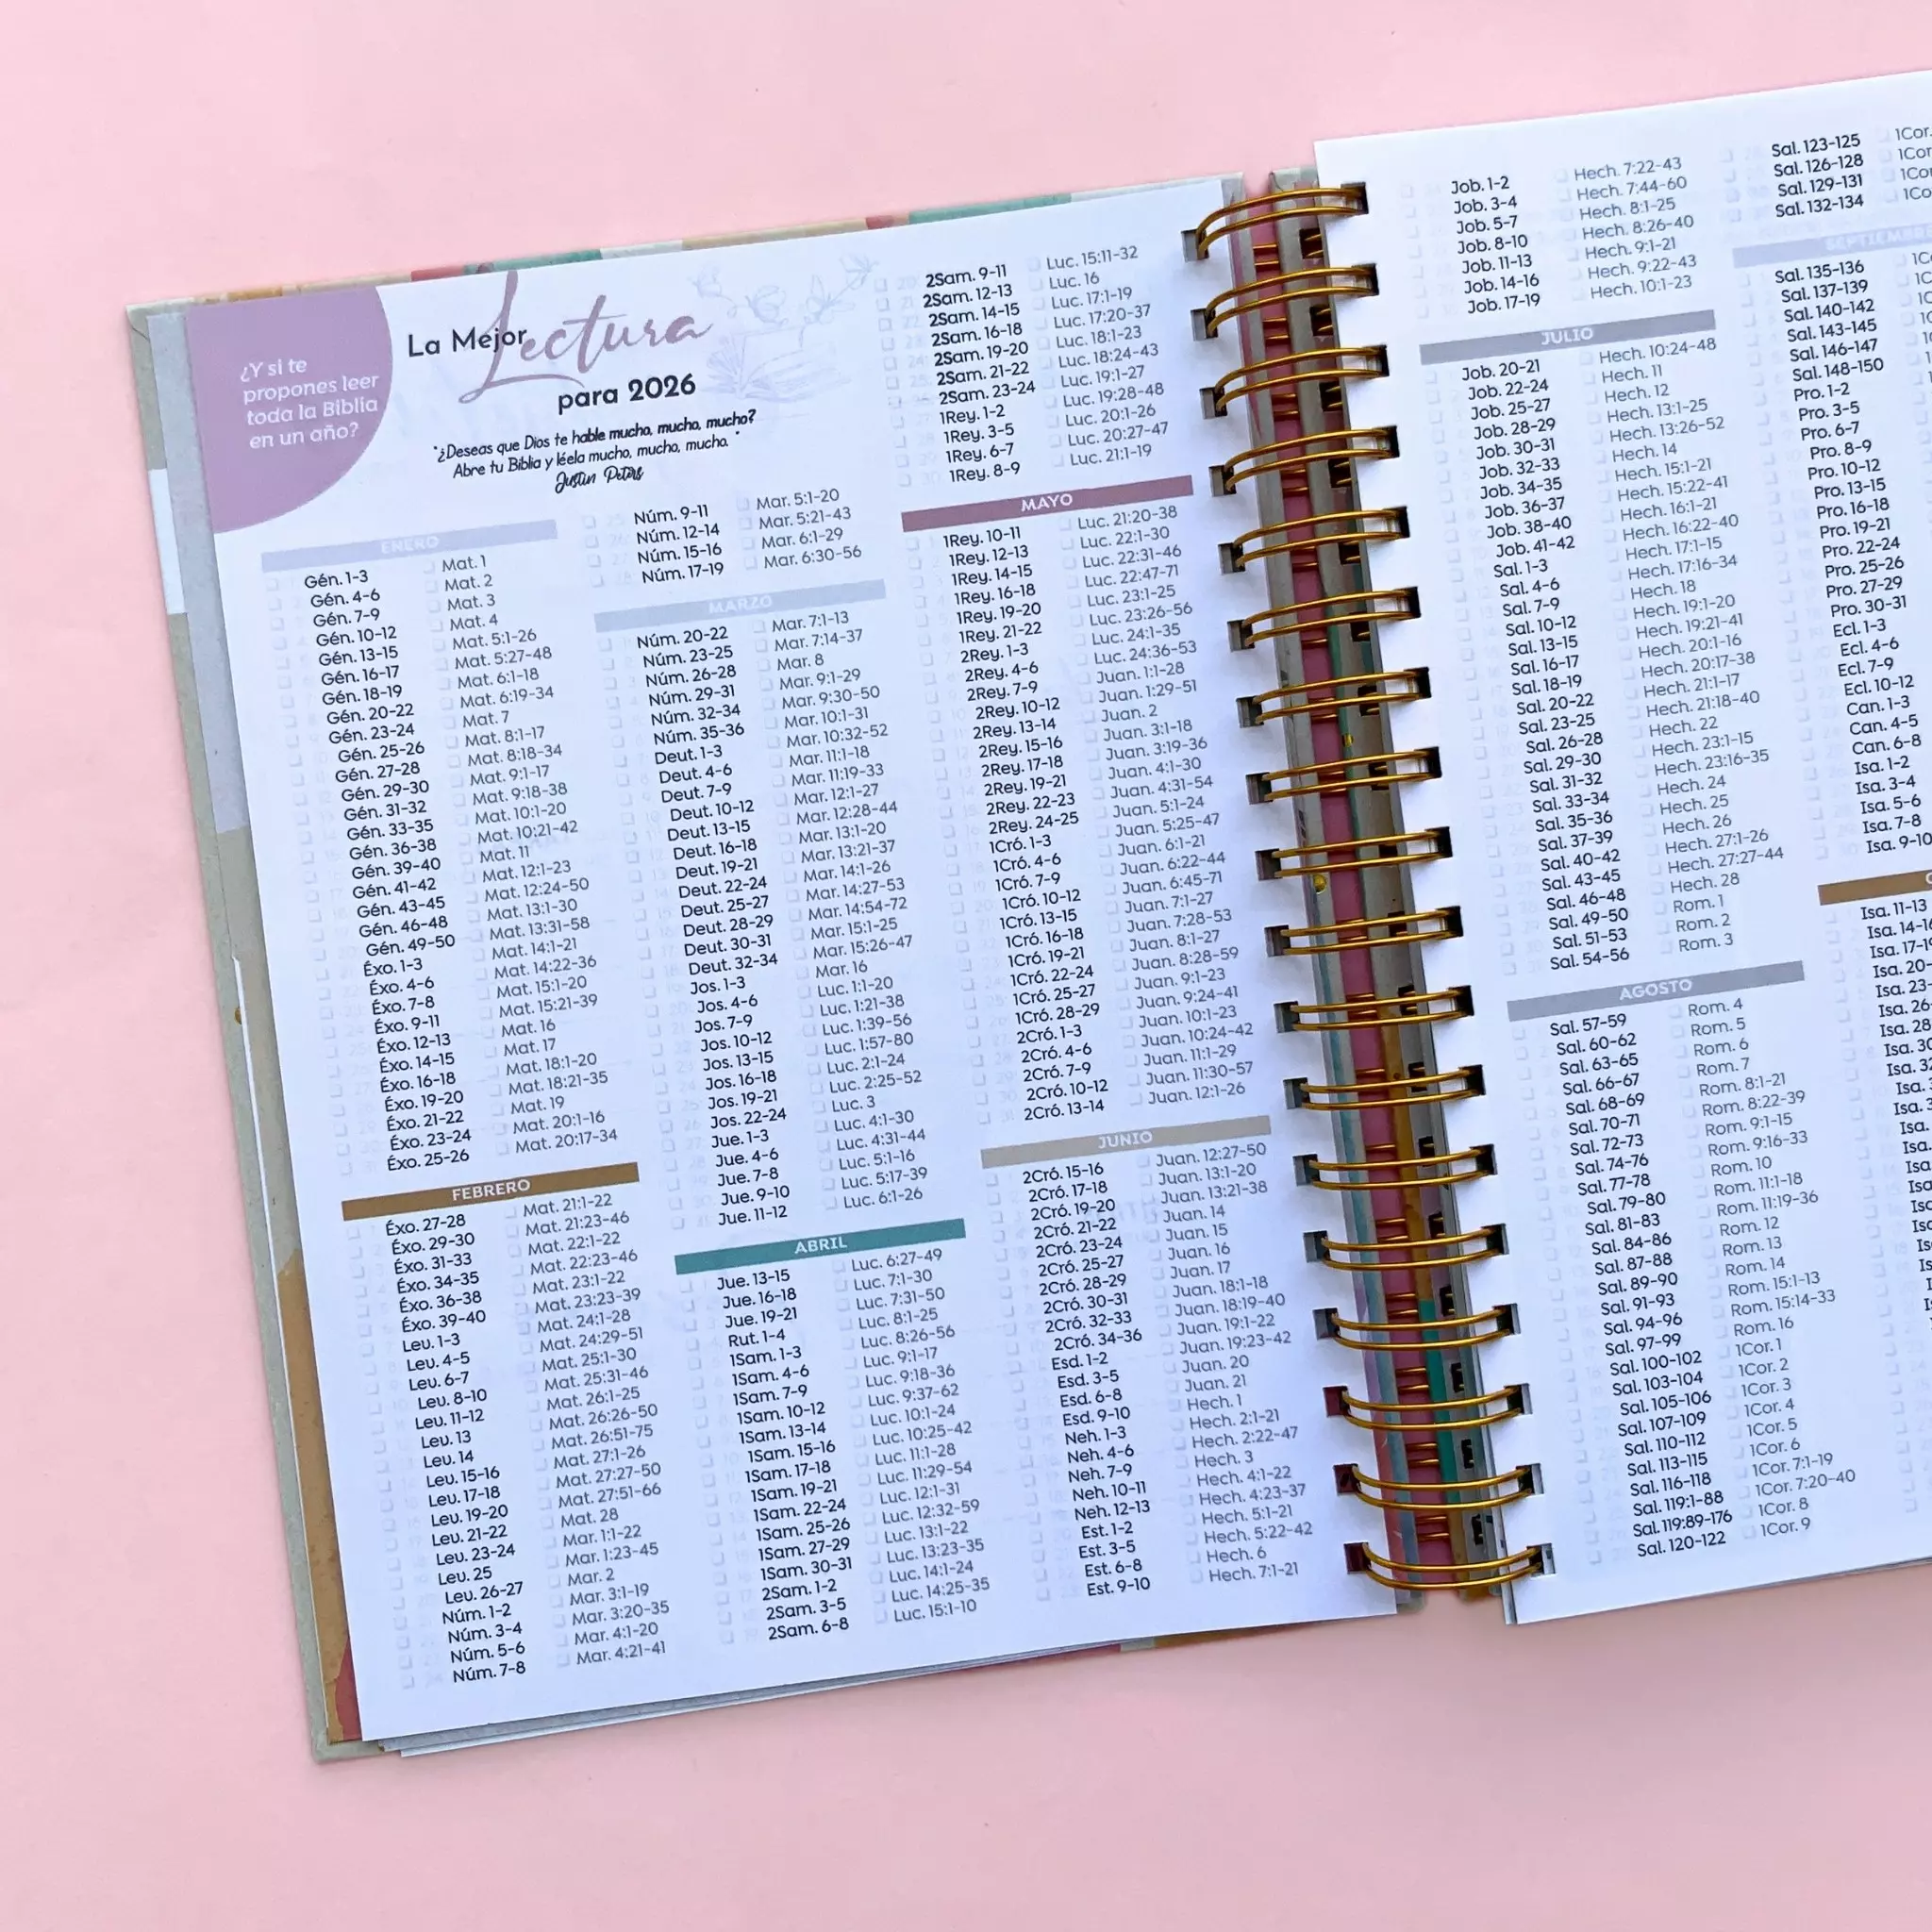 ¿Y si te
propones leer
toda la Biblia
en un año?
La Mejor Lectura
para 2026
"¿Deseas que Dios te hable mucho, mucho, mucho?
Abre tu Biblia y léela mucho, mucho, mucho."
Justin Peters
ENERO
Gén. 1-3 Mat. 1
Gén. 4-6 Mat. 2
Gén. 7-9 Mat. 3
Gén. 10-12 Mat. 4
Gén. 13-15 Mat. 5:1-26
Gén. 16-17 Mat. 5:27-48
Gén. 18-19 Mat. 6:1-18
Gén. 20-22 Mat. 6:19-34
Gén. 23-24 Mat. 7
Gén. 25-26 Mat. 8:1-17
Gén. 27-28 Mat. 8:18-34
Gén. 29-30 Mat. 9:1-17
Gén. 31-32 Mat. 9:18-38
Gén. 33-35 Mat. 10:1-20
Gén. 36-38 Mat. 10:21-42
Gén. 39-40 Mat. 11
Gén. 41-42 Mat. 12:1-23
Gén. 43-45 Mat. 12:24-50
Gén. 46-48 Mat. 13:1-30
Gén. 49-50 Mat. 13:31-58
Éxo. 1-3 Mat. 14:1-21
Éxo. 4-6 Mat. 14:22-36
Éxo. 7-8 Mat. 15:1-20
Éxo. 9-11 Mat. 15:21-39
Éxo. 12-13 Mat. 16
Éxo. 14-15 Mat. 17
Éxo. 16-18 Mat. 18:1-20
Éxo. 19-20 Mat. 18:21-35
Éxo. 21-22 Mat. 19
Éxo. 23-24 Mat. 20:1-16
Éxo. 25-26 Mat. 20:17-34
FEBRERO
Éxo. 27-28 Mat. 21:1-22
Éxo. 29-30 Mat. 21:23-46
Éxo. 31-33 Mat. 22:1-22
Éxo. 34-35 Mat. 22:23-46
Éxo. 36-38 Mat. 23:1-22
Éxo. 39-40 Mat. 23:23-39
Lev. 1-3 Mat. 24:1-28
Lev. 4-5 Mat. 24:29-51
Lev. 6-7 Mat. 25:1-30
Lev. 8-10 Mat. 25:31-46
Lev. 11-12 Mat. 26:1-25
Lev. 13 Mat. 26:26-50
Lev. 14 Mat. 26:51-75
Lev. 15-16 Mat. 27:1-26
Lev. 17-18 Mat. 27:27-50
Lev. 19-20 Mat. 27:51-66
Lev. 21-22 Mat. 28
Lev. 23-24 Mar. 1:1-22
Lev. 25 Mar. 1:23-45
Lev. 26-27 Mar. 2
Núm. 1-2 Mar. 3:1-19
Núm. 3-4 Mar. 3:20-35
Núm. 5-6 Mar. 4:1-20
Núm. 7-8 Mar. 4:21-41
Núm. 9-11 Mar. 5:1-20
Núm. 12-14 Mar. 5:21-43
Núm. 15-16 Mar. 6:1-29
Núm. 17-19 Mar. 6:30-56
MARZO
Núm. 20-22 Mar. 7:1-13
Núm. 23-25 Mar. 7:14-37
Núm. 26-28 Mar. 8
Núm. 29-31 Mar. 9:1-29
Núm. 32-34 Mar. 9:30-50
Núm. 35-36 Mar. 10:1-31
Deut. 1-3 Mar. 10:32-52
Deut. 4-6 Mar. 11:1-18
Deut. 7-9 Mar. 11:19-33
Deut. 10-12 Mar. 12:1-27
Deut. 13-15 Mar. 12:28-44
Deut. 16-18 Mar. 13:1-20
Deut. 19-21 Mar. 13:21-37
Deut. 22-24 Mar. 14:1-26
Deut. 25-27 Mar. 14:27-53
Deut. 28-29 Mar. 14:54-72
Deut. 30-31 Mar. 15:1-25
Deut. 32-34 Mar. 15:26-47
Jos. 1-3 Mar. 16
Jos. 4-6 Luc. 1:1-20
Jos. 7-9 Luc. 1:21-38
Jos. 10-12 Luc. 1:39-56
Jos. 13-15 Luc. 1:57-80
Jos. 16-18 Luc. 2:1-24
Jos. 19-21 Luc. 2:25-52
Jos. 22-24 Luc. 3
Jue. 1-3 Luc. 4:1-30
Jue. 4-6 Luc. 4:31-44
Jue. 7-8 Luc. 5:1-16
Jue. 9-10 Luc. 5:17-39
Jue. 11-12 Luc. 6:1-26
ABRIL
Jue. 13-15 Luc. 6:27-49
Jue. 16-18 Luc. 7:1-30
Jue. 19-21 Luc. 7:31-50
Rut. 1-4 Luc. 8:1-25
1Sam. 1-3 Luc. 8:26-56
1Sam. 4-6 Luc. 9:1-17
1Sam. 7-9 Luc. 9:18-36
1Sam. 10-12 Luc. 9:37-62
1Sam. 13-14 Luc. 10:1-24
1Sam. 15-16 Luc. 10:25-42
1Sam. 17-18 Luc. 11:1-28
1Sam. 19-21 Luc. 11:29-54
1Sam. 22-24 Luc. 12:1-31
1Sam. 25-26 Luc. 12:32-59
1Sam. 27-29 Luc. 13:1-22
1Sam. 30-31 Luc. 13:23-35
2Sam. 1-2 Luc. 14:1-24
2Sam. 3-5 Luc. 14:25-35
2Sam. 6-8 Luc. 15:1-10
2Sam. 9-11 Luc. 15:11-32
2Sam. 12-13 Luc. 16
2Sam. 14-15 Luc. 17:1-19
2Sam. 16-18 Luc. 17:20-37
2Sam. 19-20 Luc. 18:1-23
2Sam. 21-22 Luc. 18:24-43
2Sam. 23-24 Luc. 19:1-27
1Rey. 1-2 Luc. 19:28-48
1Rey. 3-5 Luc. 20:1-26
1Rey. 6-7 Luc. 20:27-47
1Rey. 8-9 Luc. 21:1-19
MAYO
1Rey. 10-11 Luc. 21:20-38
1Rey. 12-13 Luc. 22:1-30
1Rey. 14-15 Luc. 22:31-46
1Rey. 16-18 Luc. 22:47-71
1Rey. 19-20 Luc. 23:1-25
1Rey. 21-22 Luc. 23:26-56
2Rey. 1-3 Luc. 24:1-35
2Rey. 4-6 Luc. 24:36-53
2Rey. 7-9 Juan. 1:1-28
2Rey. 10-12 Juan. 1:29-51
2Rey. 13-14 Juan. 2
2Rey. 15-16 Juan. 3:1-18
2Rey. 17-18 Juan. 3:19-36
2Rey. 19-21 Juan. 4:1-30
2Rey. 22-23 Juan. 4:31-54
2Rey. 24-25 Juan. 5:1-24
1Cró. 1-3 Juan. 5:25-47
1Cró. 4-6 Juan. 6:1-21
1Cró. 7-9 Juan. 6:22-44
1Cró. 10-12 Juan. 6:45-71
1Cró. 13-15 Juan. 7:1-27
1Cró. 16-18 Juan. 7:28-53
1Cró. 19-21 Juan. 8:1-27
1Cró. 22-24 Juan. 8:28-59
1Cró. 25-27 Juan. 9:1-23
1Cró. 28-29 Juan. 9:24-41
2Cró. 1-3 Juan. 10:1-23
2Cró. 4-6 Juan. 10:24-42
2Cró. 7-9 Juan. 11:1-29
2Cró. 10-12 Juan. 11:30-57
2Cró. 13-14 Juan. 12:1-26
JUNIO
2Cró. 15-16 Juan. 12:27-50
2Cró. 17-18 Juan. 13:1-20
2Cró. 19-20 Juan. 13:21-38
2Cró. 21-22 Juan. 14
2Cró. 23-24 Juan. 15
2Cró. 25-27 Juan. 16
2Cró. 28-29 Juan. 17
2Cró. 30-31 Juan. 18:1-18
2Cró. 32-33 Juan. 18:19-40
2Cró. 34-36 Juan. 19:1-22
Esd. 1-2 Juan. 19:23-42
Esd. 3-5 Juan. 20
Esd. 6-8 Juan. 21
Esd. 9-10 Hech. 1
Neh. 1-3 Hech. 2:1-21
Neh. 4-6 Hech. 2:22-47
Neh. 7-9 Hech. 3
Neh. 10-11 Hech. 4:1-22
Neh. 12-13 Hech. 4:23-37
Est. 1-2 Hech. 5:1-21
Est. 3-5 Hech. 5:22-42
Est. 6-8 Hech. 6
Est. 9-10 Hech. 7:1-21
Job. 1-2 Hech. 7:22-43
Job. 3-4 Hech. 7:44-60
Job. 5-7 Hech. 8:1-25
Job. 8-10 Hech. 8:26-40
Job. 11-13 Hech. 9:1-21
Job. 14-16 Hech. 9:22-43
Job. 17-19 Hech. 10:1-23
JULIO
Job. 20-21 Hech. 10:24-48
Job. 22-24 Hech. 11
Job. 25-27 Hech. 12
Job. 28-29 Hech. 13:1-25
Job. 30-31 Hech. 13:26-52
Job. 32-33 Hech. 14
Job. 34-35 Hech. 15:1-21
Job. 36-37 Hech. 15:22-41
Job. 38-40 Hech. 16:1-21
Job. 41-42 Hech. 16:22-40
Sal. 1-3 Hech. 17:1-15
Sal. 4-6 Hech. 17:16-34
Sal. 7-9 Hech. 18
Sal. 10-12 Hech. 19:1-20
Sal. 13-15 Hech. 19:21-41
Sal. 16-17 Hech. 20:1-16
Sal. 18-19 Hech. 20:17-38
Sal. 20-22 Hech. 21:1-17
Sal. 23-25 Hech. 21:18-40
Sal. 26-28 Hech. 22
Sal. 29-30 Hech. 23:1-15
Sal. 31-32 Hech. 23:16-35
Sal. 33-34 Hech. 24
Sal. 35-36 Hech. 25
Sal. 37-39 Hech. 26
Sal. 40-42 Hech. 27:1-26
Sal. 43-45 Hech. 27:27-44
Sal. 46-48 Hech. 28
Sal. 49-50 Rom. 1
Sal. 51-53 Rom. 2
Sal. 54-56 Rom. 3
AGOSTO
Sal. 57-59 Rom. 4
Sal. 60-62 Rom. 5
Sal. 63-65 Rom. 6
Sal. 66-67 Rom. 7
Sal. 68-69 Rom. 8:1-21
Sal. 70-71 Rom. 8:22-39
Sal. 72-73 Rom. 9:1-15
Sal. 74-76 Rom. 9:16-33
Sal. 77-78 Rom. 10
Sal. 79-80 Rom. 11:1-18
Sal. 81-83 Rom. 11:19-36
Sal. 84-86 Rom. 12
Sal. 87-88 Rom. 13
Sal. 89-90 Rom. 14
Sal. 91-93 Rom. 15:1-13
Sal. 94-96 Rom. 15:14-33
Sal. 97-99 Rom. 16
Sal. 100-102 1Cor. 1
Sal. 103-104 1Cor. 2
Sal. 105-106 1Cor. 3
Sal. 107-109 1Cor. 4
Sal. 110-112 1Cor. 5
Sal. 113-115 1Cor. 6
Sal. 116-118 1Cor. 7:1-19
Sal. 119:1-88 1Cor. 7:20-40
Sal. 119:89-176 1Cor. 8
Sal. 120-122 1Cor. 9
Sal. 123-125 1Cor.
Sal. 126-128 1Cor
Sal. 129-131 1Co
Sal. 132-134 1Co
SEPTIEMBRE
Sal. 135-136
Sal. 137-139
Sal. 140-142
Sal. 143-145
Sal. 146-147
Sal. 148-150
Pro. 1-2
Pro. 3-5
Pro. 6-7
Pro. 8-9
Pro. 10-12
Pro. 13-15
Pro. 16-18
Pro. 19-21
Pro. 22-24
Pro. 25-26
Pro. 27-29
Pro. 30-31
Ecl. 1-3
Ecl. 4-6
Ecl. 7-9
Ecl. 10-12
Can. 1-3
Can. 4-5
Can. 6-8
Isa. 1-2
Isa. 3-4
Isa. 5-6
Isa. 7-8
Isa. 9-10
Isa. 11-13
Isa. 14-1
Isa. 17-1
Isa. 20-
Isa. 23-
Isa. 26
Isa. 28
Isa. 30
Isa. 32
Isa.
Isa.
Isa.
Isa.
Isa
Isa